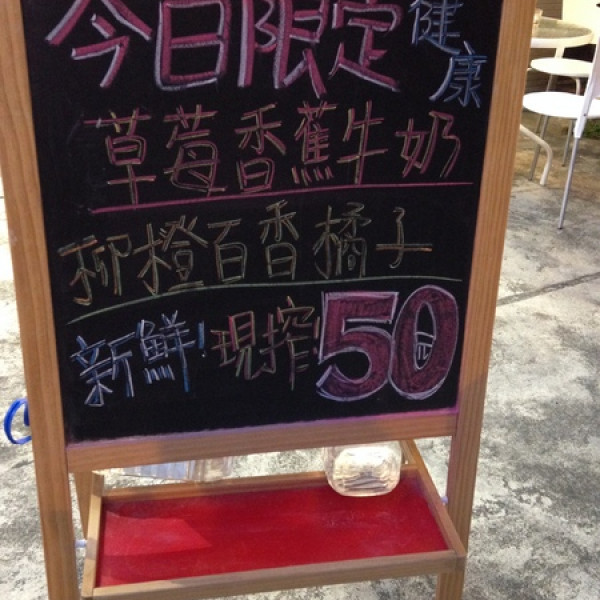 今日限定
健康
草莓香蕉牛奶
柳橙百香橘子
新鮮!現搾!50元